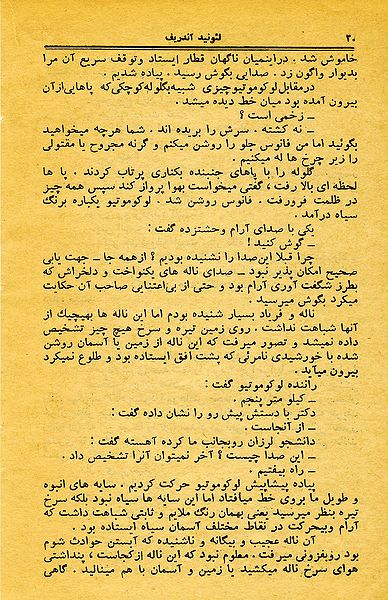 ۲۰
لئونید آندریف
خاموش شد . دراینمیان ناگهان قطار ایستاد وتوقف سریع آن مرا
بدیوار واگون زد . صدایی بگوش رسید . پیاده شدیم .
درمقابل لوکوموتیوچیزی شبیه بگلوله کوچکی که پاهایی ازآن
بیرون آمده بود میان خط دیده میشد .
ــ زخمی است ؟
ــ نه کشته . سرش را بریده اند . شما هرچه میخواهید
بگوئید اما من فانوس جلو را روشن میکنم و گرنه مجروح یا مقتولی
را زیر چرخ ها له میکنیم .
گلوله را با پاهای جنبنده بکناری پرتاب کردند . پا ها
لحظه ای بالا رفت ، گفتی میخواست بهوا پرواز کند سپس همه چیز
در ظلمت فرورفت . فانوس روشن شد . لوکوموتیو یکباره برنگ
سیاه درآمد .
یکی با صدای آرام وحشتزده گفت :
ــ گوش کنید !
چرا قبلا این صدا را نشنیده بودیم ؟ ازهمه جا ــ جهت یابی
صحیح امکان پذیر نبود ــ صدای ناله های یکنواخت و دلخراش که
بطرز شگفت آوری آرام بود و حتی از بی اعتنایی صاحب آن حکایت
میکرد بگوش میرسید .
ناله و فریاد بسیار شنیده بودم اما این ناله ها بهیچیك از
آنها شباهت نداشت . روی زمین تیره و سرخ هیچ چیز تشخیص
داده نمیشد و تصور میرفت که این ناله از زمین یا آسمان روشن
شده با خورشیدی نامرئی که پشت افق ایستاده بود و طلوع نمیکرد
بیرون میآید .
راننده لوکوموتیو گفت :
ــ کیلو متر پنجم .
دکتر با دستش پیش رو را نشان داده گفت :
ــ از آنجاست .
دانشجو لرزان روبجانب ما کرده آهسته گفت :
ــ این صدا چیست ؟ آخر نمیتوان آنرا تشخیص داد .
ــ راه بیفتیم .
پیاده پیشاپیش لوکوموتیو حرکت کردیم . سایه های انبوه
و طویل ما بروی خط میافتاد اما این سایه ها سیاه نبود بلکه سرخ
تیره بنظر میرسید یعنی بهمان رنگ ملایم و ثابتی شباهت داشت که
آرام وبیحرکت در نقاط مختلف آسمان سیاه ایستاده بود .
آن ناله عجیب و بیگانه و ناشنیده که آبستن حوادث شوم
بود روبفزونی میرفت . معلوم نبود که این ناله ازکجاست ، پنداشتی
هوای سرخ ناله میکشید یا زمین و آسمان با هم مینالید . گاهی